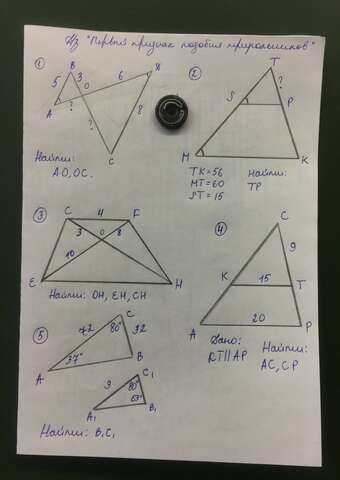 Дз "Первый признак подобия треугольников"
① 
B
3
6
D
5
O
A
?
?
8
C
Найти:
AO, OC.
②
T
?
S
P
M
K
TK = 56
MT = 60
ST = 15
Найти:
TP
③
C
4
F
3
O
8
10
E
H
Найти: OH, EH, CH
④
C
9
K
15
T
20
A
P
Дано:
KT || AP
Найти:
AC, CP
⑤
C
72
80°
32
37°
B
A
C₁
9
80°
63°
A₁
B₁
Найти: B₁C₁